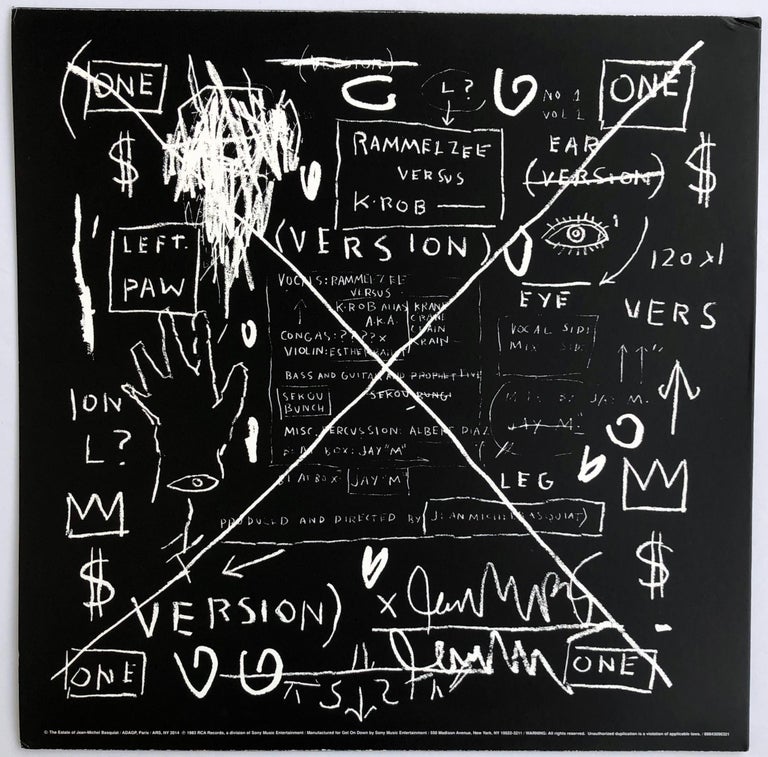 (VERSION)
ONE
L?
NO 1
VOL 1
ONE
RAMMELZEE
VERSUS
K-ROB
EAR
(VERSION)
$
$
LEFT.
PAW
(VERSION)
120 x 1
EYE
VERS
VOCALS: RAMMELZEE
VERSUS
K-ROB ALIAS
A.K.A.
KRANE
CRANE
CRAIN
KRAIN
CONGAS: ???? x
VIOLIN: ESTHER
VOCAL SIDE
BASS AND GUITAR AND PROPHET LIVE
SEKOU
BUNCH
SEKOU
JAY M.
JAY M.
ION
L?
MISC. PERCUSSION: ALBERT DIAZ
BEAT BOX: JAY "M"
LEG
BEAT BOX: JAY "M"
PRODUCED AND DIRECTED BY JEAN MICHEL BASQUIAT)
$
$
VERSION)
X
ONE
ONE
© The Estate of Jean-Michel Basquiat / ADAGP, Paris / ARS, NY 2014 ℗ 1983 RCA Records, a division of Sony Music Entertainment / Manufactured for Get On Down by Sony Music Entertainment / 550 Madison Avenue, New York, NY 10022-3211 / WARNING: All rights reserved. Unauthorized duplication is a violation of applicable laws. / 88843090321